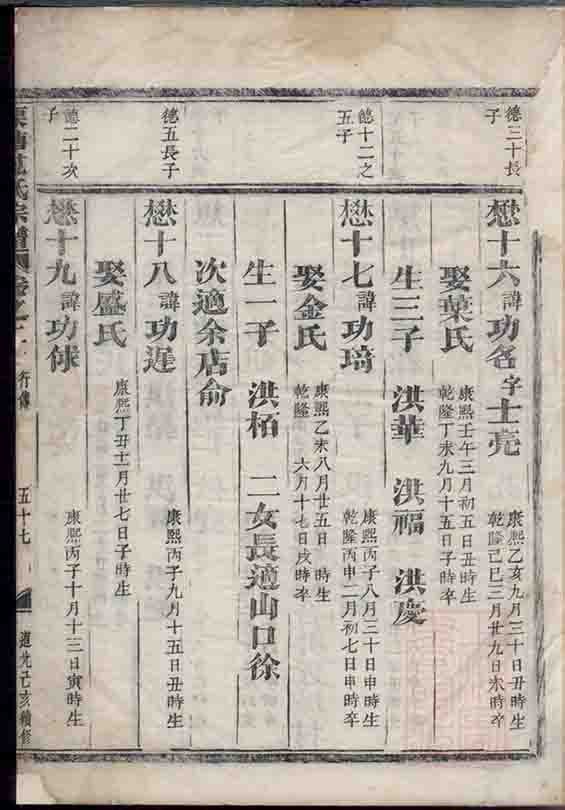 德三十長
子
懋十六諱功名字士亮
康熙乙亥九月三十日丑時生
乾隆己巳三月廿九日未時卒
娶葉氏
康熙壬午三月初五日丑時生
乾隆丁未九月十五日子時卒
生三子 洪華 洪福 洪慶
德十二之
五子
懋十七諱功琦
康熙丙子八月三十日申時生
乾隆丙申二月初七日申時卒
娶金氏
康熙乙未八月廿五日 時生
乾隆 六月十七日戌時卒
生一子 洪栢 二女長適山口徐
次適余店俞
德五長子
懋十八諱功遲
康熙丙子九月十五日丑時生
娶盛氏
康熙丁丑十一月廿七日子時生
德二十次
子
懋十九諱功俅
康熙丙子十月十三日寅時生
氏宗譜 卷之二 行傳 五十七 道光己亥續修